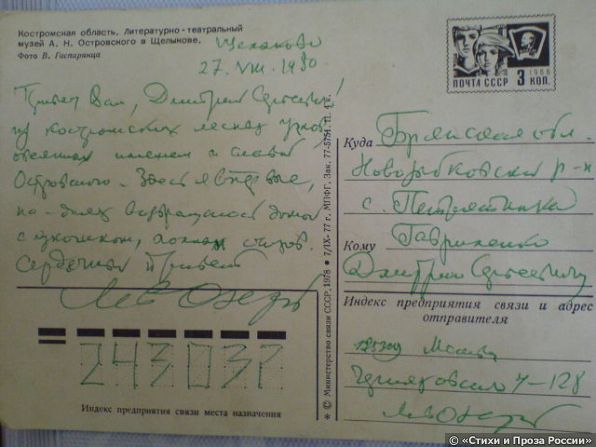 Костромская область. Литературно-театральный
музей А. Н. Островского в Щелыкове.
Фото В. Гиспарянца
Щелыково
27.VIII.1980
Привет Вам, Дмитрий Сергеевич!
из костромских лесных
овеянных именем и славы
Островского. Здесь я впервые,
на-днях возвращаюсь домой
с
Сердечный Привет
Лев Озеров
ПОЧТА СССР 3 КОП.
1966
Куда Брянская обл.
Новозыбковский р-н
с.
Кому Гавриленко
Дмитрию Сергеевичу
Индекс предприятия связи и адрес
отправителя
125319 Москва
Черняховского 4-128
Лев Озеров
243037
Индекс предприятия связи места назначения
* © Министерство связи СССР, 1978 • 7/IX-77 г. МПФГ. Зак. 77-5751. П. 4 к.
© «Стихи и Проза России»